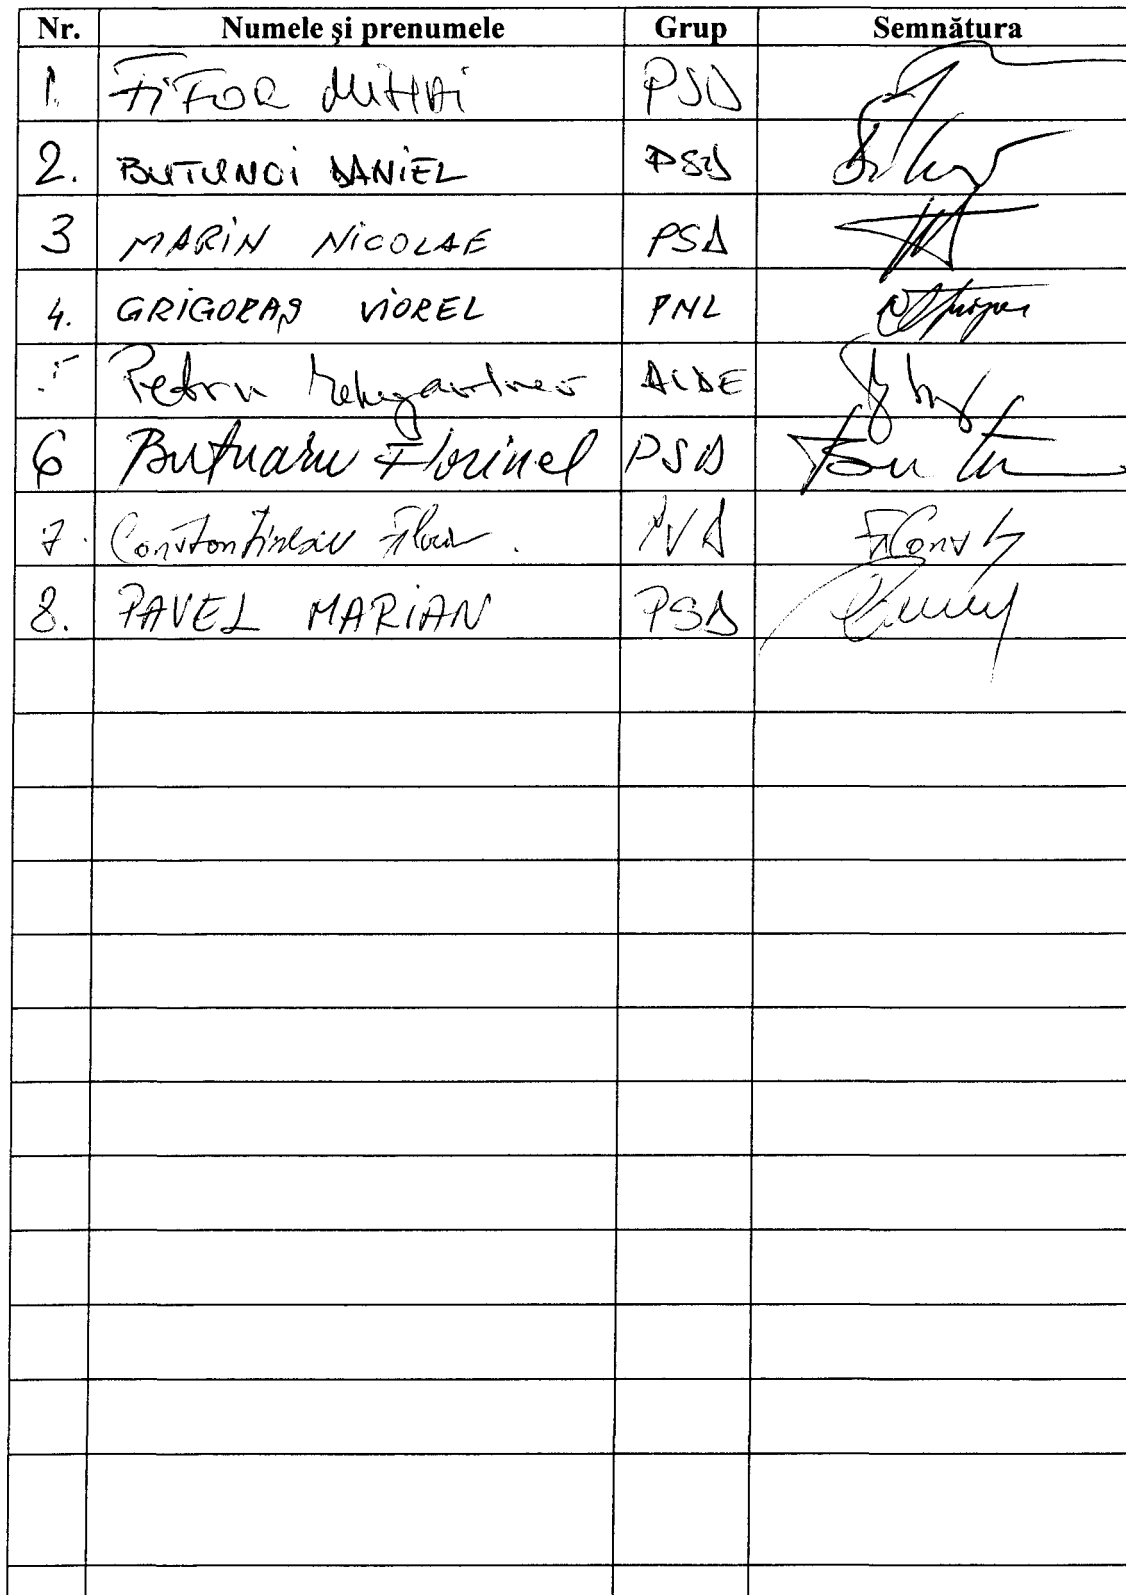 Nr. Numele și prenumele Grup Semnătura
1. FIFOR MIHAI PSD
2. BUTUNOI DANIEL PSD
3 MARIN NICOLAE PSD
4. GRIGORAȘ VIOREL PNL
Petru ALDE
6 Butnaru Florinel PSD
7. Constantinescu Florin PSD
8. PAVEL MARIAN PSD